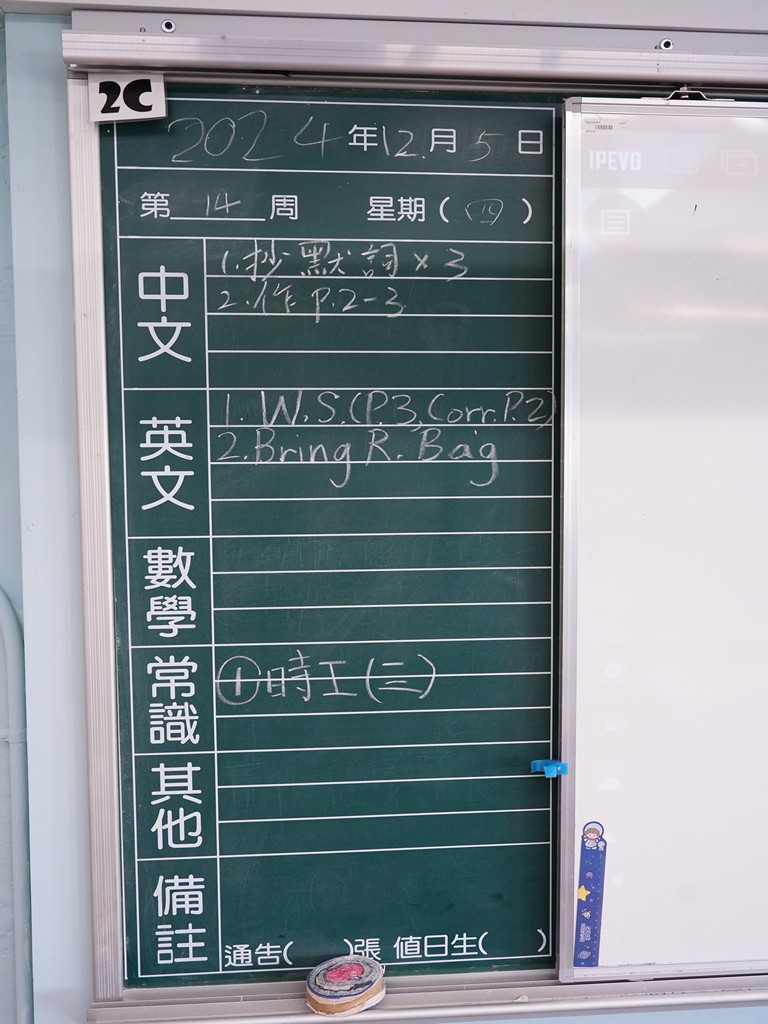 2C
2024年12月5日
第14周 星期(四)
中文
1.抄默詞×3
2.作 P.2-3
英文
1. W.S.(P.3, Corr.P.2)
2. Bring R. Bag
數學
常識
①時工(三)
其他
備註
通告( )張 值日生( )
IPEVO